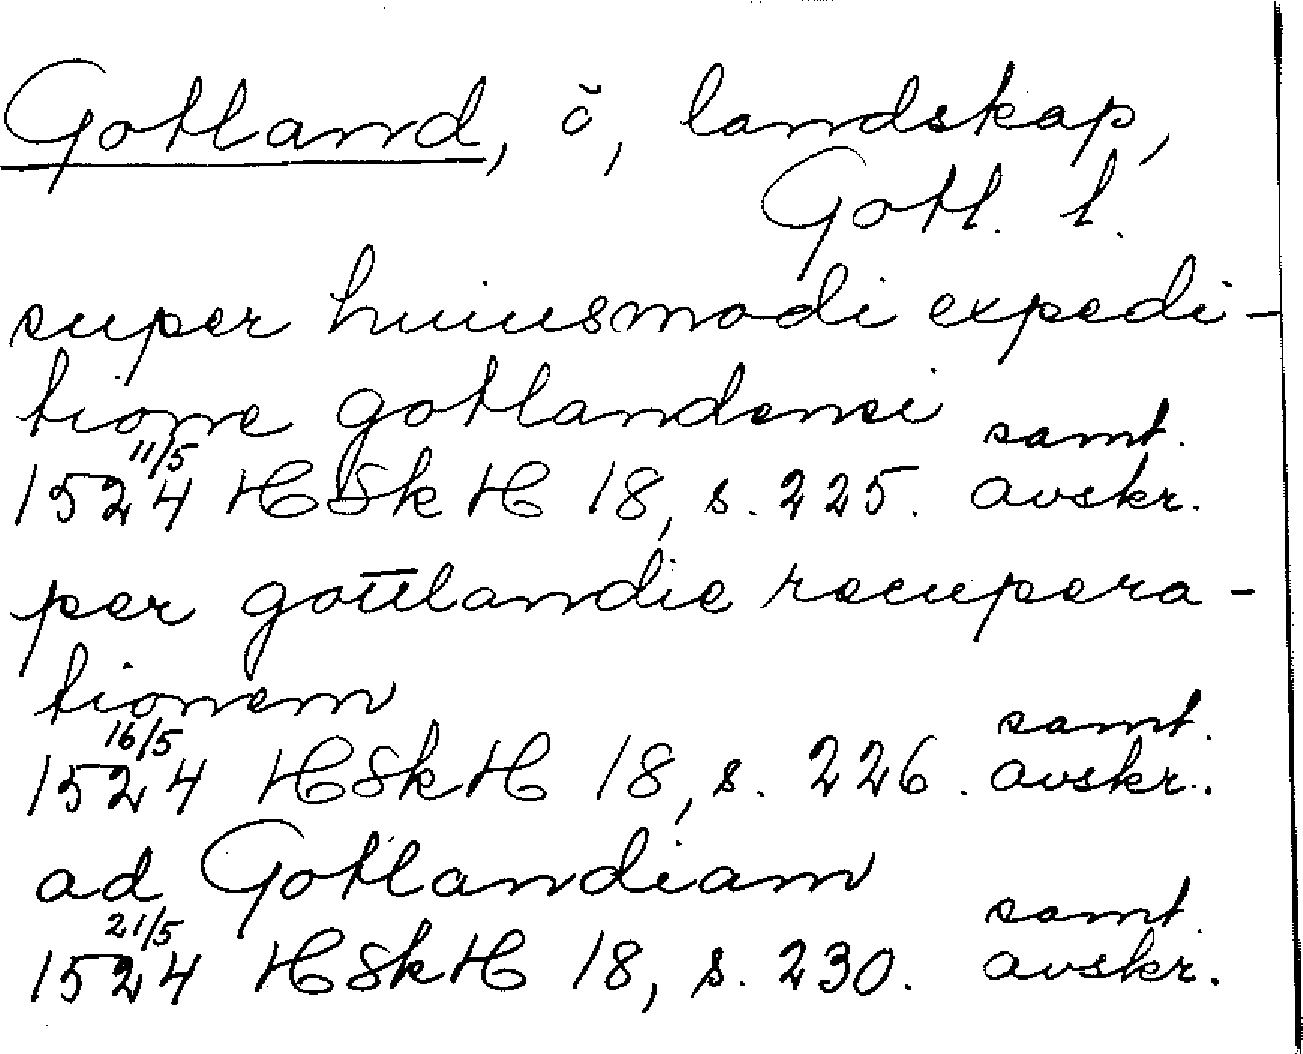 Gotland, ö, landskap,
Gotl. l.
super huiusmodi expedi-
tione gotlandensi
1524 11/5 HSkH 18, s. 225. samt. avskr.
per gottlandie recupera-
tionem
1524 16/5 HSkH 18, s. 226. samt. avskr.
ad Gotlandiam
1524 21/5 HSkH 18, s. 230. samt. avskr.